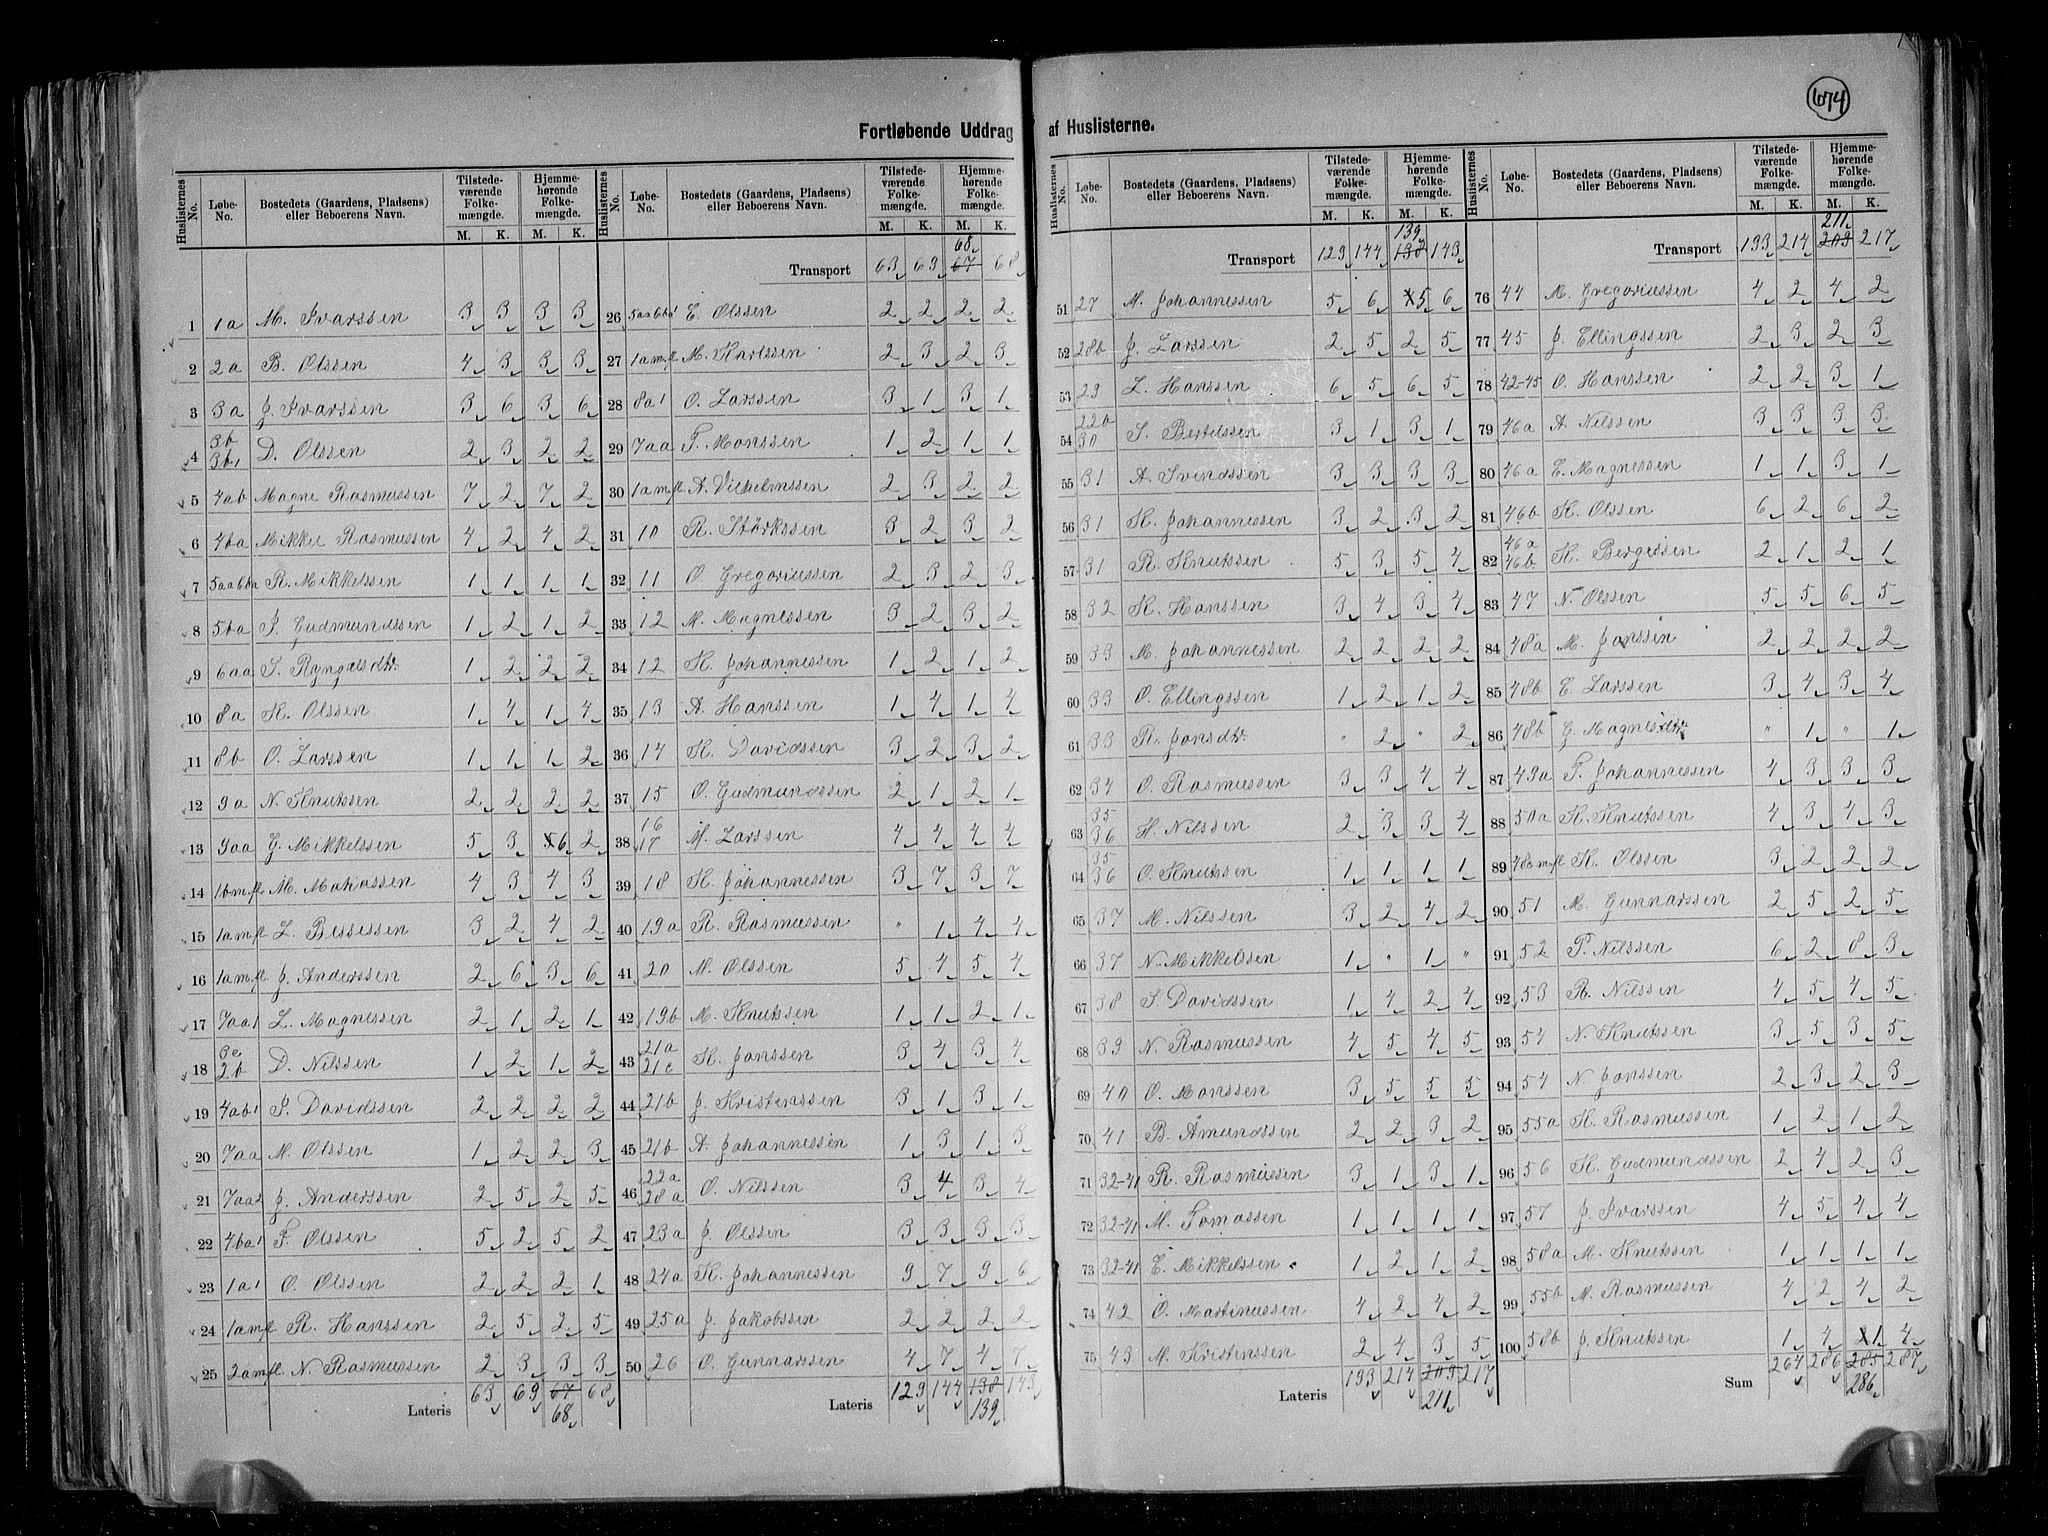 674
Fortløbende Uddrag af Huslisterne.
Huslisternes No. Løbe-No. Bostedets (Gaardens, Pladsens) eller Beboerens Navn. Tilstedeværende Folkemængde. Hjemmehørende Folkemængde.
M. K. M. K.
1 1a M. Ivarssen 3 3 3 3
2 2a B. Olssen 4 3 3 3
3 3a J. Ivarssen 3 6 3 6
4 3b 3b1 D. Olssen 2 3 2 2
5 4ab Magne Rasmussen 7 2 7 2
6 4ba Mikkel Rasmussen 4 2 4 2
7 5aa6ba R. Mikkelssen 1 1 1 1
8 5ba P. Gudmundssen 1 2 1 2
9 6aa S. Ryngelsdtr. 1 2 2 2
10 8a K. Olssen 1 4 1 4
11 8b O. Larssen 1 1 1 2
12 9a N. Knutssen 2 2 2 2
13 9aa G. Mikkelssen 5 3 5 6 2
14 1b m.fl. M. Matiassen 4 3 4 3
15 1a m.fl. L. Bessessen 3 2 4 2
16 1a m.fl. J. Anderssen 2 6 3 6
17 7aa1 L. Magnessen 2 1 2 1
18 3e 2b D. Nilssen 1 2 1 2
19 4ab1 P. Davidssen 2 2 2 2
20 7aa M. Olssen 1 2 2 3
21 7aa2 J. Anderssen 2 5 2 5
22 4ba1 T. Olssen 5 2 5 2
23 1a1 O. Olssen 2 2 2 1
24 1a m.fl R. Hanssen 2 5 2 5
25 2a m.fl. N. Rasmussen 2 3 3 3
Lateris 63 69 67 68
68
68
Transport 63 69 67 68
26 5aa6ba1 E. Olssen 2 2 2 2
27 1a m.fl. M. Karlssen 2 3 2 3
28 8a1 O. Larssen 3 1 3 1
29 7aa T. Monssen 1 2 1 1
30 1a m.fl A. Vilhelmssen 2 3 2 2
31 10 R. Størkssen 3 2 3 2
32 11 O. Gregoriussen 2 3 2 3
33 12 M. Magnessen 3 2 3 2
34 12 K. Johannessen 1 2 1 2
35 13 A. Hanssen 1 4 1 4
36 14 K. Davidssen 3 2 3 2
37 15 O. Gudmundssen 2 1 2 1
38 16 17 M. Larssen 4 4 4 4
39 18 K. Johannessen 3 7 3 7
40 19a R. Rasmussen " 1 4 4
41 20 M. Olssen 5 4 5 4
42 19b M. Knutssen 1 1 2 1
43 21a 21c K. Jonssen 3 4 3 4
44 21b J. Kristenssen 3 1 3 1
45 21b A. Johannessen 1 3 1 3
46 22a 28a O. Nilssen 3 4 3 4
47 23a J. Olssen 3 3 3 3
48 24a K. Johannessen 9 7 9 6
49 25a J. Jakobssen 2 2 2 2
50 26 O. Gunnarssen 4 7 4 7
Lateris 129 144 138 143
139
Huslisternes No. Løbe-No. Bostedets (Gaardens, Pladsens) eller Beboerens Navn. Tilstedeværende Folkemængde. Hjemmehørende Folkemængde.
M. K. M. K.
139
Transport 129 144 138 143
51 27 M. Johannessen 5 6 5 6
52 28b J. Larssen 2 5 2 5
53 29 L. Hanssen 6 5 6 5
54 22b 30 S. Bertelssen 3 1 3 1
55 31 A. Svendssen 3 3 3 3
56 31 K. Johannessen 3 2 3 2
57 31 R. Knutssen 5 3 5 4
58 32 K. Hanssen 3 4 3 4
59 33 M. Johannessen 2 2 2 2
60 33 O. Ellingssen 1 2 1 2
61 33 R. Jonsdtr. " 2 " 2
62 34 O. Rasmussen 3 3 4 4
63 35 36 H. Nilssen 2 3 3 4
64 35 36 O. Knutssen 1 1 1 1
65 37 M. Nilssen 3 2 4 2
66 37 N. Mikkelssen 1 " 1 "
67 38 S. Davidssen 1 4 2 4
68 39 N. Rasmussen 4 5 4 5
69 40 O. Monssen 3 5 5 5
70 41 B. Amundssen 2 2 3 2
71 32-41 R. Rasmussen 3 1 3 1
72 32-41 M. Tomassen 1 1 1 1
73 32-41 E. Mikkelssen 1 2 1 2
74 42 O. Martinussen 4 2 4 2
75 43 M. Kristenssen 2 4 3 5
Lateris 193 214 209 217
211
211
Transport 193 214 209 217
76 44 M. Gregoriussen 4 2 4 2
77 45 J. Ellingssen 2 3 2 3
78 42-45 O. Hanssen 2 2 3 1
79 46a A. Nilssen 3 3 3 3
80 46a E. Magnessen 1 1 3 1
81 46b K. Olssen 6 2 6 2
82 46a 46b K. Bergessen 2 1 2 1
83 47 N. Olssen 5 5 6 5
84 48a M. Jonssen 2 2 2 2
85 48b E. Larssen 3 4 3 4
86 48b G. Magnesdtr " 1 " 1
87 49a T. Johannessen 4 3 3 3
88 50a K. Knutssen 4 3 4 3
89 48a m.fl K. Olssen 3 2 2 2
90 51 M. Gunnarssen 2 5 2 5
91 52 T. Nilssen 6 2 8 3
92 53 R. Nilssen 4 5 4 5
93 54 N. Knutssen 3 5 3 5
94 54 N. Jonssen 2 3 2 3
95 55a K. Rasmussen 1 2 1 2
96 56 K. Gudmundssen 2 4 2 3
97 57 J. Ivarssen 4 5 4 4
98 58a M. Knutssen 1 1 1 1
99 55b M. Rasmussen 4 2 4 2
100 58b J. Knutssen 1 4 1 4
Sum 264 286 285 287
286